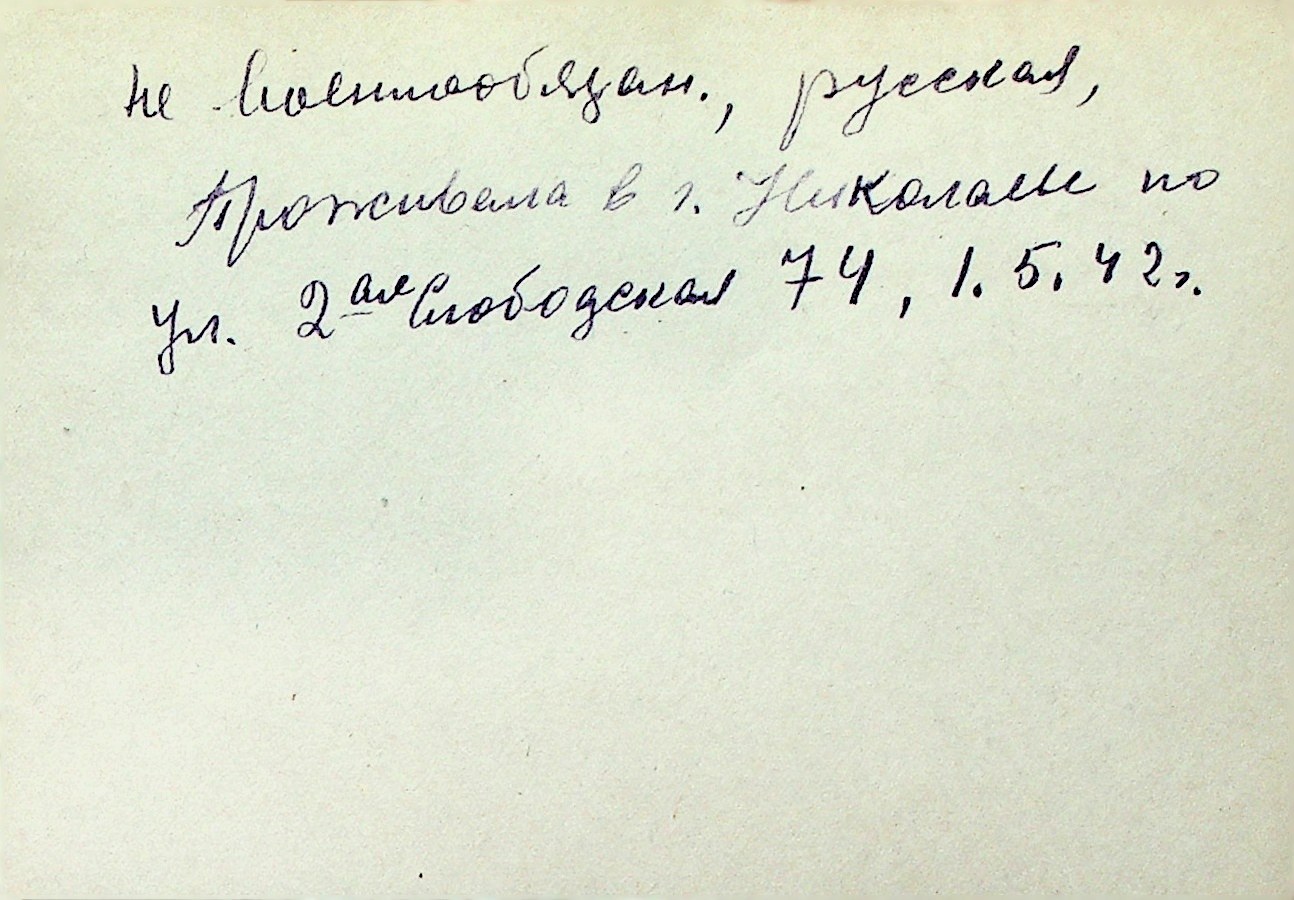 не военнообязан., русская,
Проживала в г. Николаеве по
ул. 2ая Слободская 74, 1.5.42г.